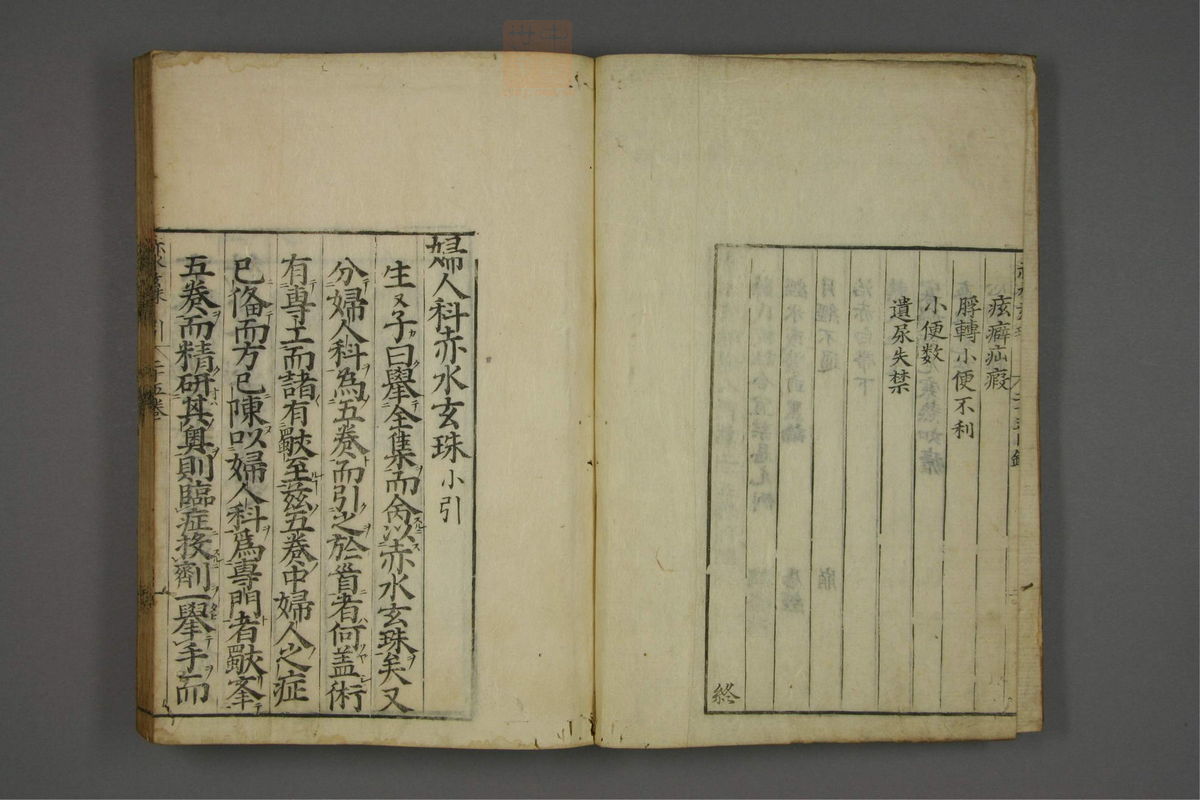 痃癖疝瘕
脬轉小便不利
小便數
遺尿失禁
終
婦人科赤水玄珠小引
生生子曰舉全集而命以赤水玄珠矣又
分婦人科為五卷而引之於首者何蓋術
有專工而諸有歝至茲五卷中婦人之症
已俻而方已陳以婦人科爲專門者歝奉
五卷而精研其奧則臨症投劑一舉手而